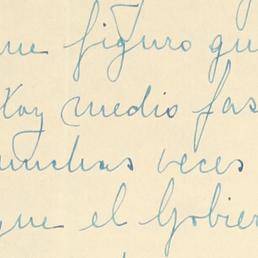 me figuro qu
stoy medio fas
muchas veces
que el Gobier